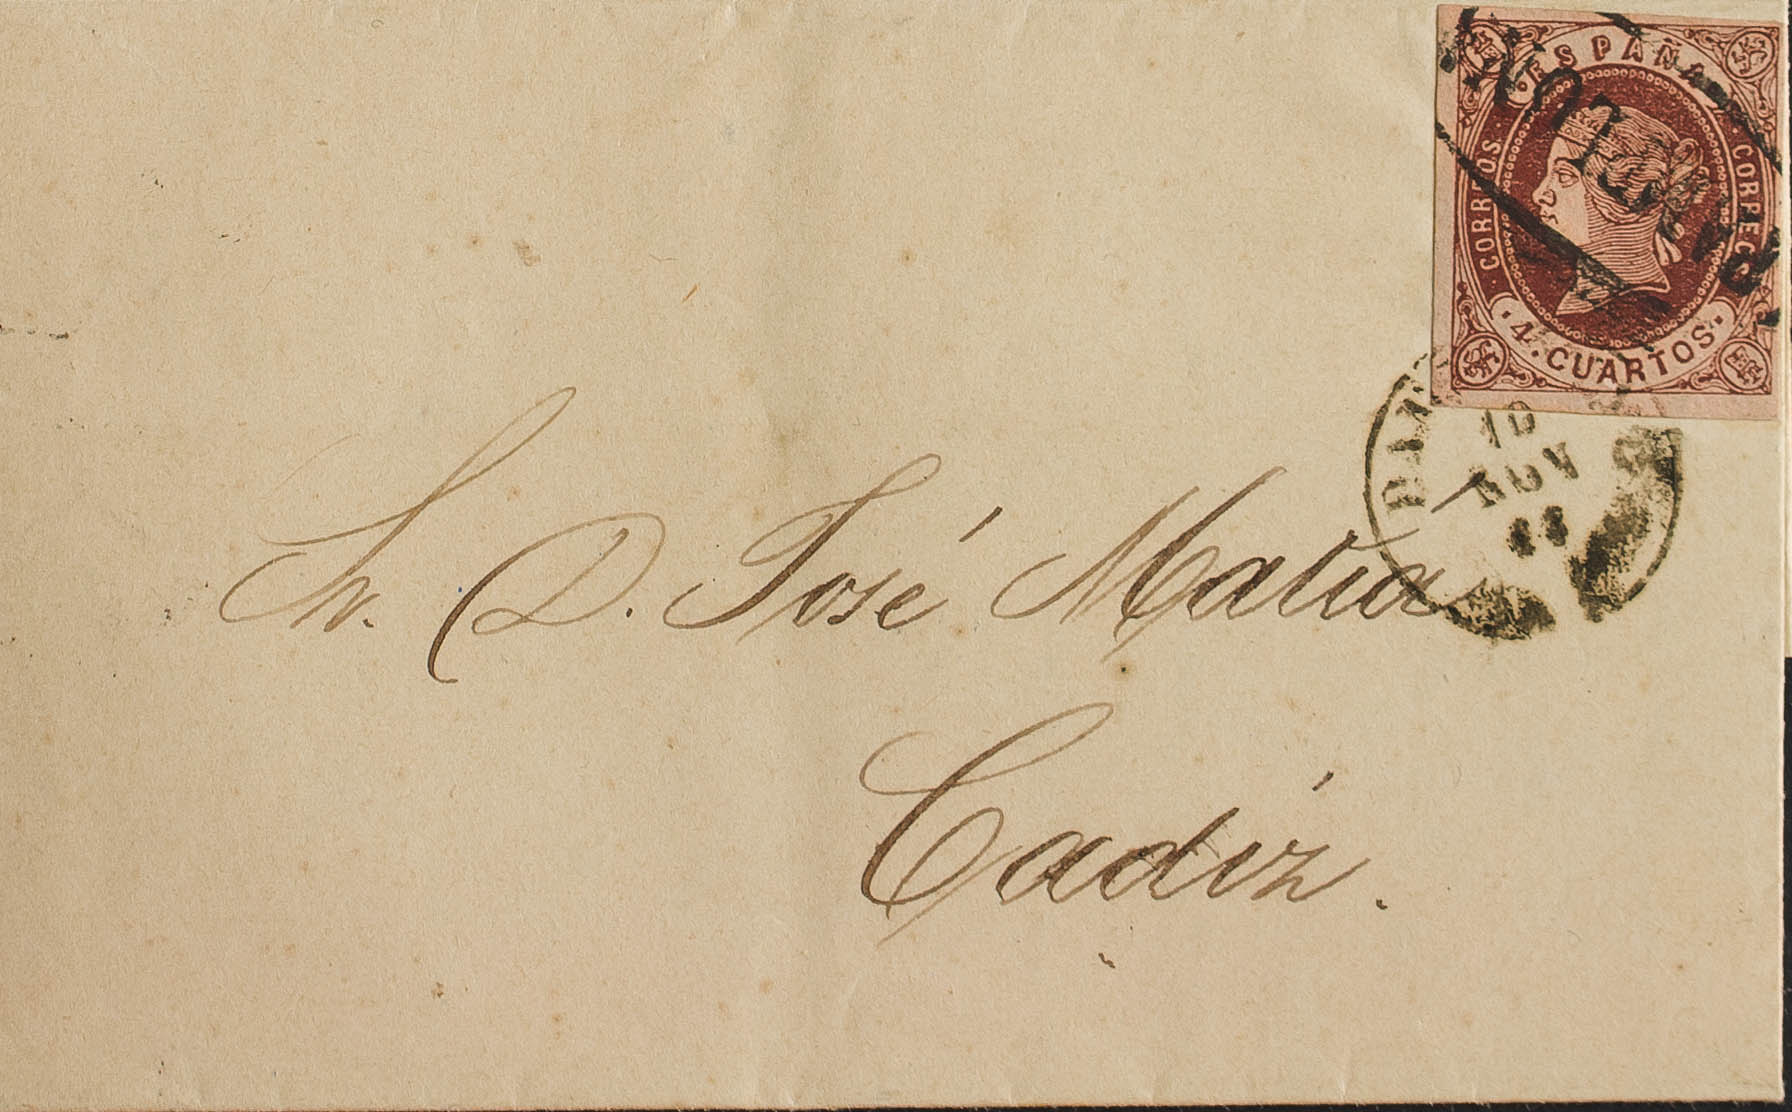 ESPAÑA
CORREOS
CORREOS
4. CUARTOS.
10
NOV
Sr. D. José Matia
Cadiz.